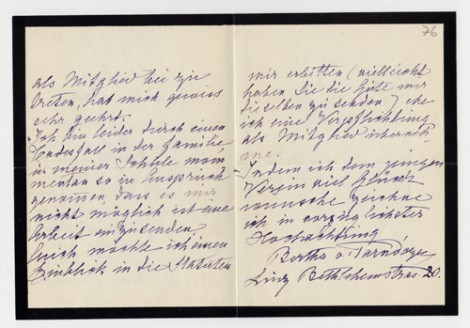 76
als Mitglied bei zu
treten, hat mich gewiss
sehr geehrt.
Ich bin leider durch einen
Todesfall in der Familie
in meiner momen
mentan so in Anspruch
genomen, dass es mir
nicht möglich ist eine
Arbeit einzusenden.
Auch möchte ich einen
Einblick in die Statuten
mir erbitten (vielleicht
haben Sie die Güte mir
dieselben zu senden) ehe
ich eine Verpflichtung
als Mitglied überneh
me.
Indem ich dem jungen
Verein viel Glück
wünsche zeichne
ich in vorzüglichster
Hochachtung
Bertha v. Tarnóczy
Linz Bethlehemstras. 20.